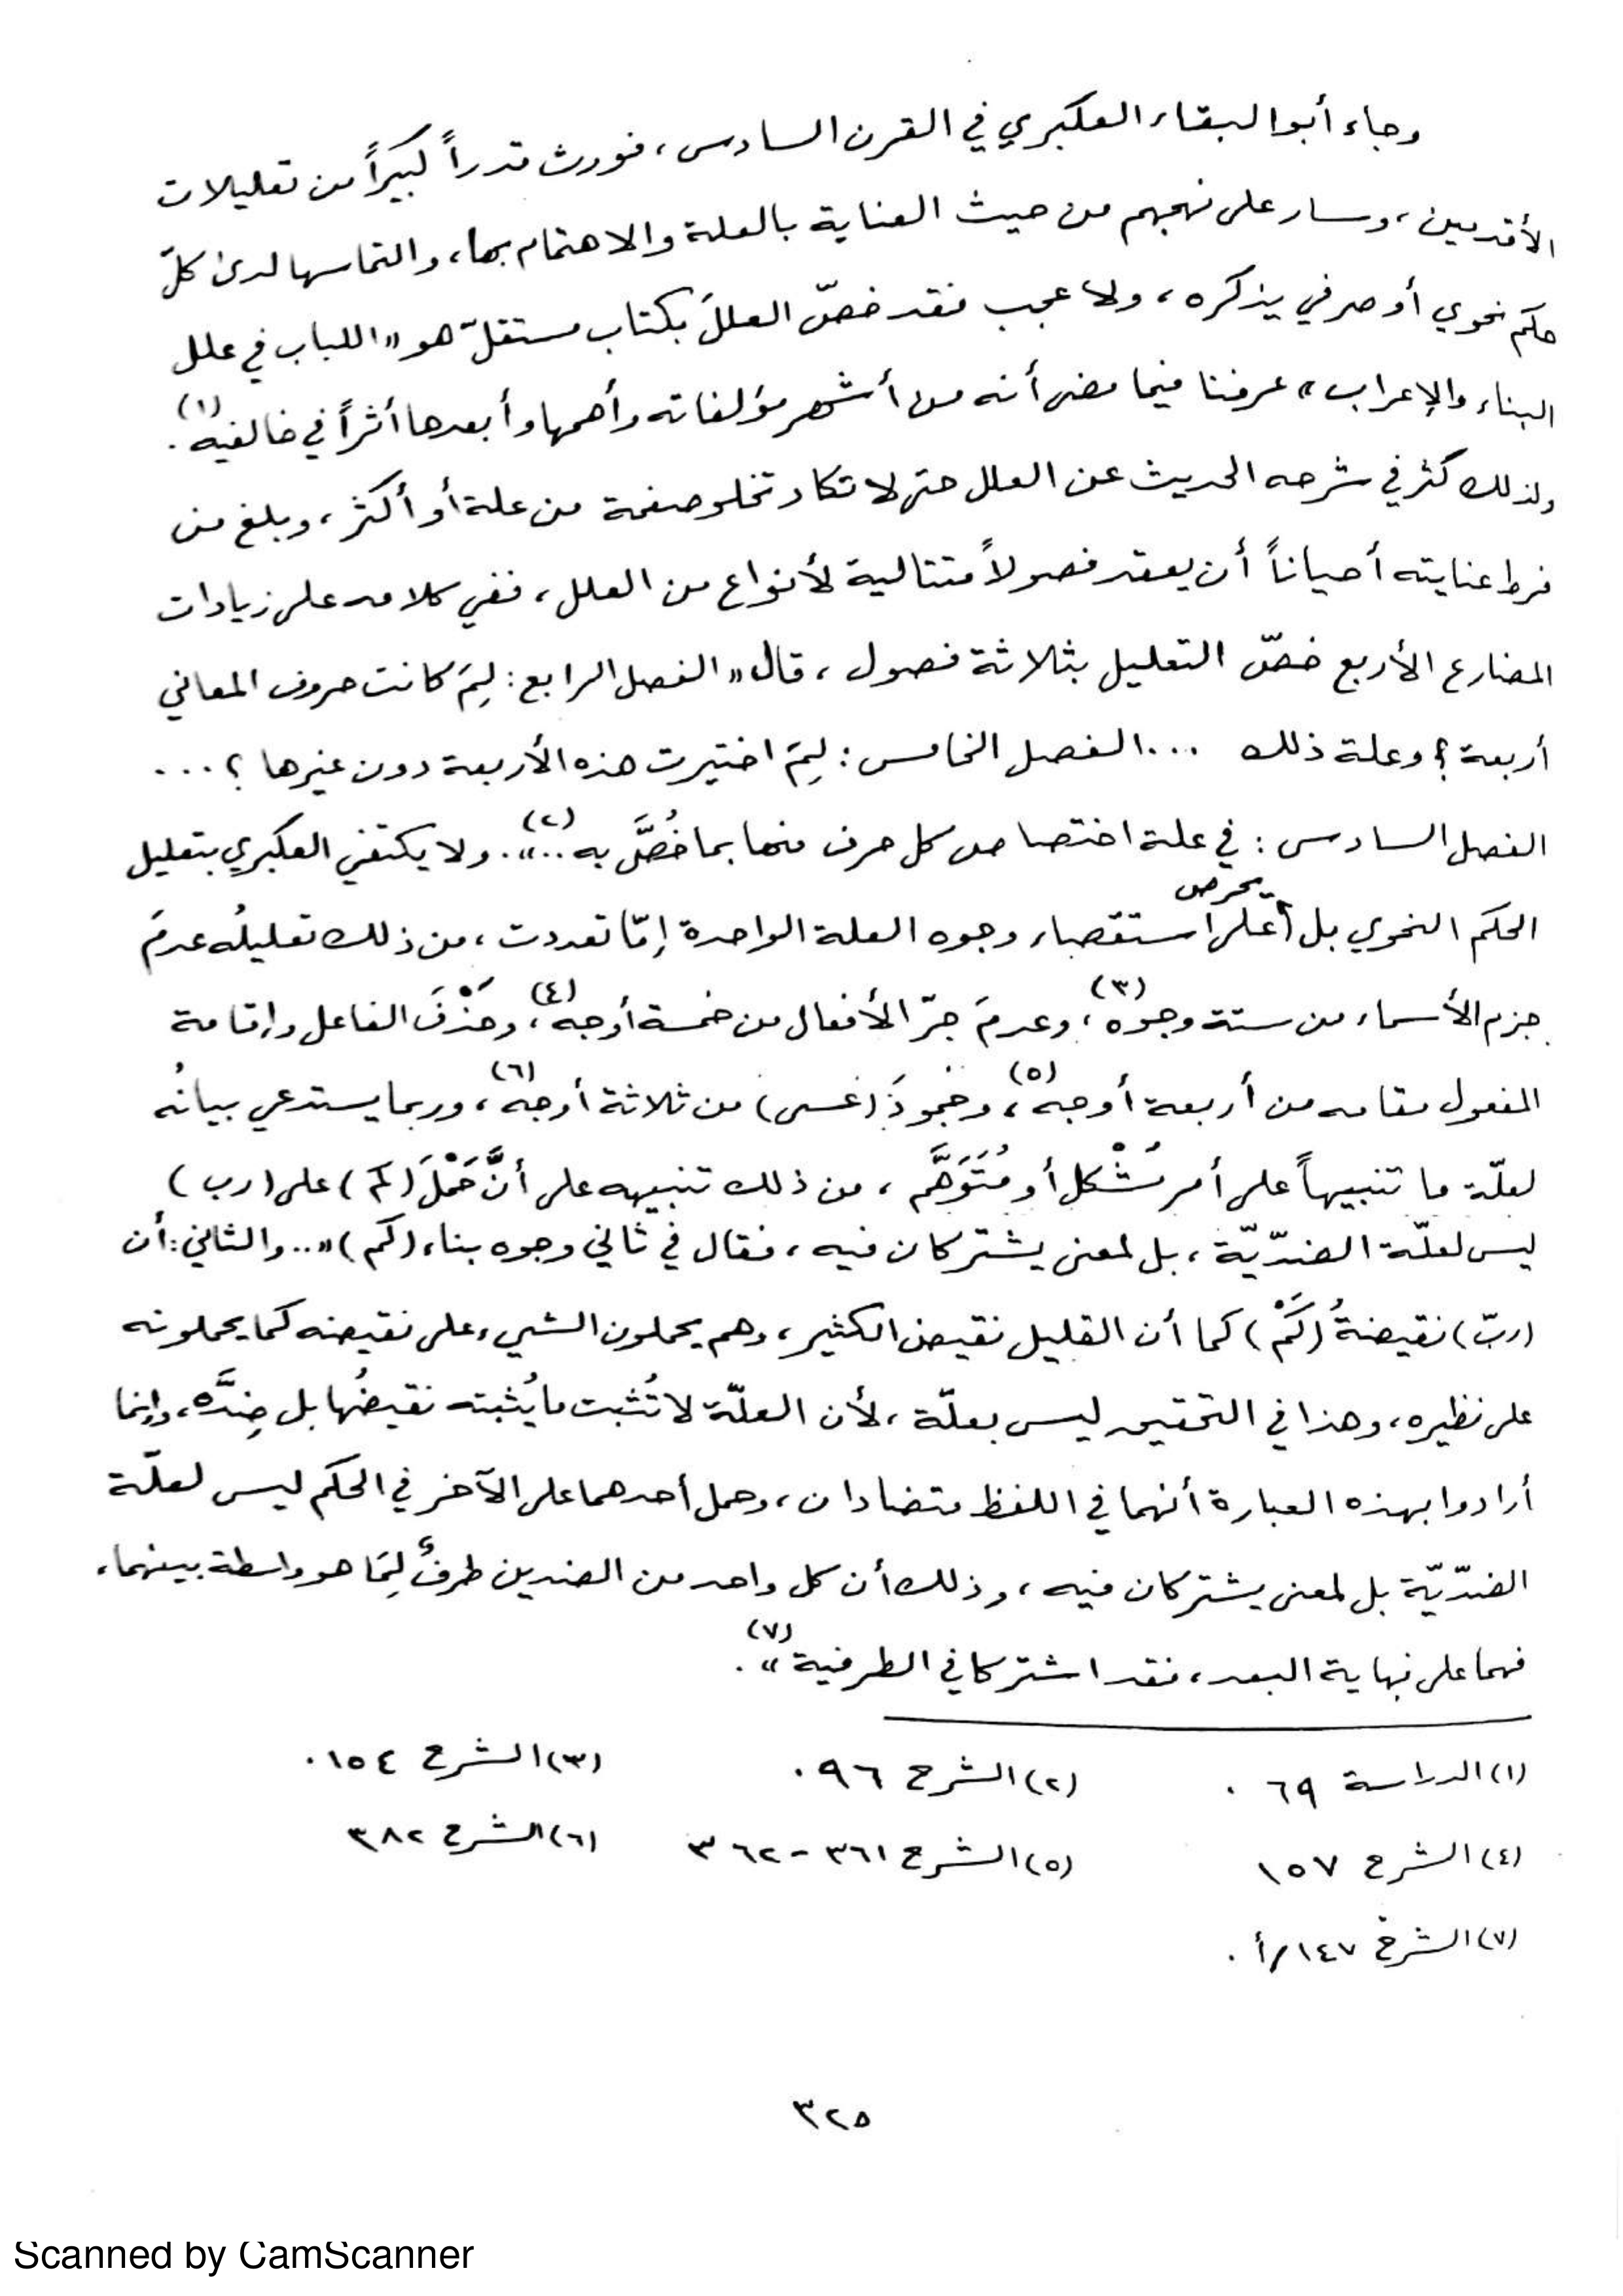 وجاء أبو البقاء العكبري في القرن السادس، فورث قدراً كبيراً من تعليلات
الأقدمين، وسار على نهجهم من حيث العناية بالعلة والاهتمام بها، والتماسها لدى كلّ
حكم نحوي أو صرفي يذكره، ولا عجب فقد خصّ العللَ بكتاب مستقلّ هو «اللباب في علل
البناء والإعراب» عرفنا فيما مضى أنه من أشهر مؤلفاته وأهمها وأبعدها أثراً في خالفيه(١).
ولذلك كثر في شرحه الحديث عن العلل حتى لا تكاد تخلو صفحة من علة أو أكثر، وبلغ من
فرط عنايته أحياناً أن يعقد فصولاً متتالية لأنواع من العلل، ففي كلامه على زيادات
المضارع الأربع خصّ التعليل بثلاثة فصول، قال «الفصل الرابع: لِمَ كانت حروف المعاني
أربعة؟ وعلة ذلك ... الفصل الخامس: لِمَ اختيرت هذه الأربعة دون غيرها؟ ...
الفصل السادس: في علة اختصاص كل حرف منها بما خُصَّ به ..»(٢). ولا يكتفي العكبري بتعليل
الحكم النحوي بل يحرص على استقصاء وجوه العلة الواحدة إمّا تعددت، من ذلك تعليلُه عدمَ
جزم الأسماء من ستة وجوه(٣)، وعدمَ جرّ الأفعال من خمسة أوجه(٤)، وحَذْفَ الفاعل وإقامة
المفعول مقامه من أربعة أوجه(٥)، وجمودَ (عسى) من ثلاثة أوجه(٦)، وربما يستدعي بيانُه
لعلّة ما تنبيهاً على أمر مُشْكل أو مُتَوَهَّم، من ذلك تنبيهه على أنَّ حَمْلَ (كم) على (رب)
ليس لعلّة الضدّيّة، بل لمعنى يشتركان فيه، فقال في ثاني وجوه بناء (كم) «.. والثاني: أن
(ربّ) نقيضةُ (كَمْ) كما أن القليل نقيض الكثير، وهم يحملون الشيء على نقيضه كما يحملونه
على نظيره، وهذا في التحقيق ليس بعلّة، لأن العلّة لا تُثبت ما يُثبته نقيضُها بل ضِدَّه، وإنما
أرادوا بهذه العبارة أنهما في اللفظ متضادان، وحمل أحدهما على الآخر في الحكم ليس لعلّة
الضدّيّة بل لمعنى يشتركان فيه، وذلك أن كل واحد من الضدين طرفٌ لِمَا هو واسطة بينهما،
فهما على نهاية البعد، فقد اشتركا في الطرفية»(٧).
(١) الدراسة ٦٩ . (٢) الشرح ٩٦ . (٣) الشرح ١٥٤ .
(٤) الشرح ١٥٧ (٥) الشرح ٣٦١ - ٣٦٢ (٦) الشرح ٣٨٢
(٧) الشرح ١٤٧/أ .
٣٢٥
Scanned by CamScanner